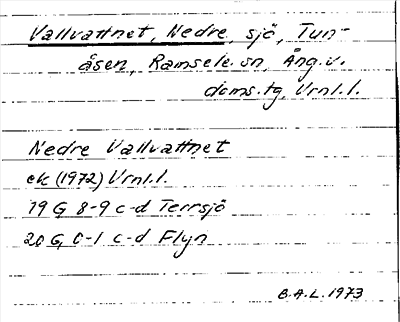 Vallvattnet, Nedre, sjö, Tun-
åsen, Ramsele sn, Ång.v.
doms.tg, Vrnl.l.
Nedre Vallvattnet
ek (1972) Vrnl.l.
19 G 8-9 c-d Terrsjö
20 G 0-1 c-d Flyn
B.A.L. 1973